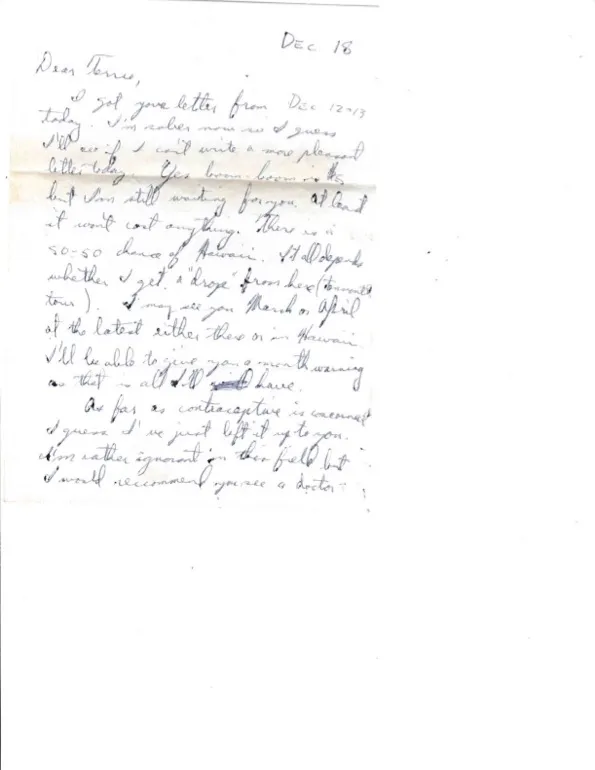 DEC 18
Dear Terrie,
I got your letter from DEC 12+13
today. I'm sober now so I guess
I'll see if I can't write a more pleasant
letter today. Yes boom-boom is $5
but I'm still waiting for you. At least
it won't cost anything. There is a
50-50 chance of Hawaii. It all depends
whether I get a "drop" from here (
tour). I may see you March or April
at the latest either there or in Hawaii.
I'll be able to give you a month warning
as that is all I'll have.
As far as contraceptive is concerned
I guess I've just left it up to you.
I'm rather ignorant in this field but
I would reccommend you see a doctor